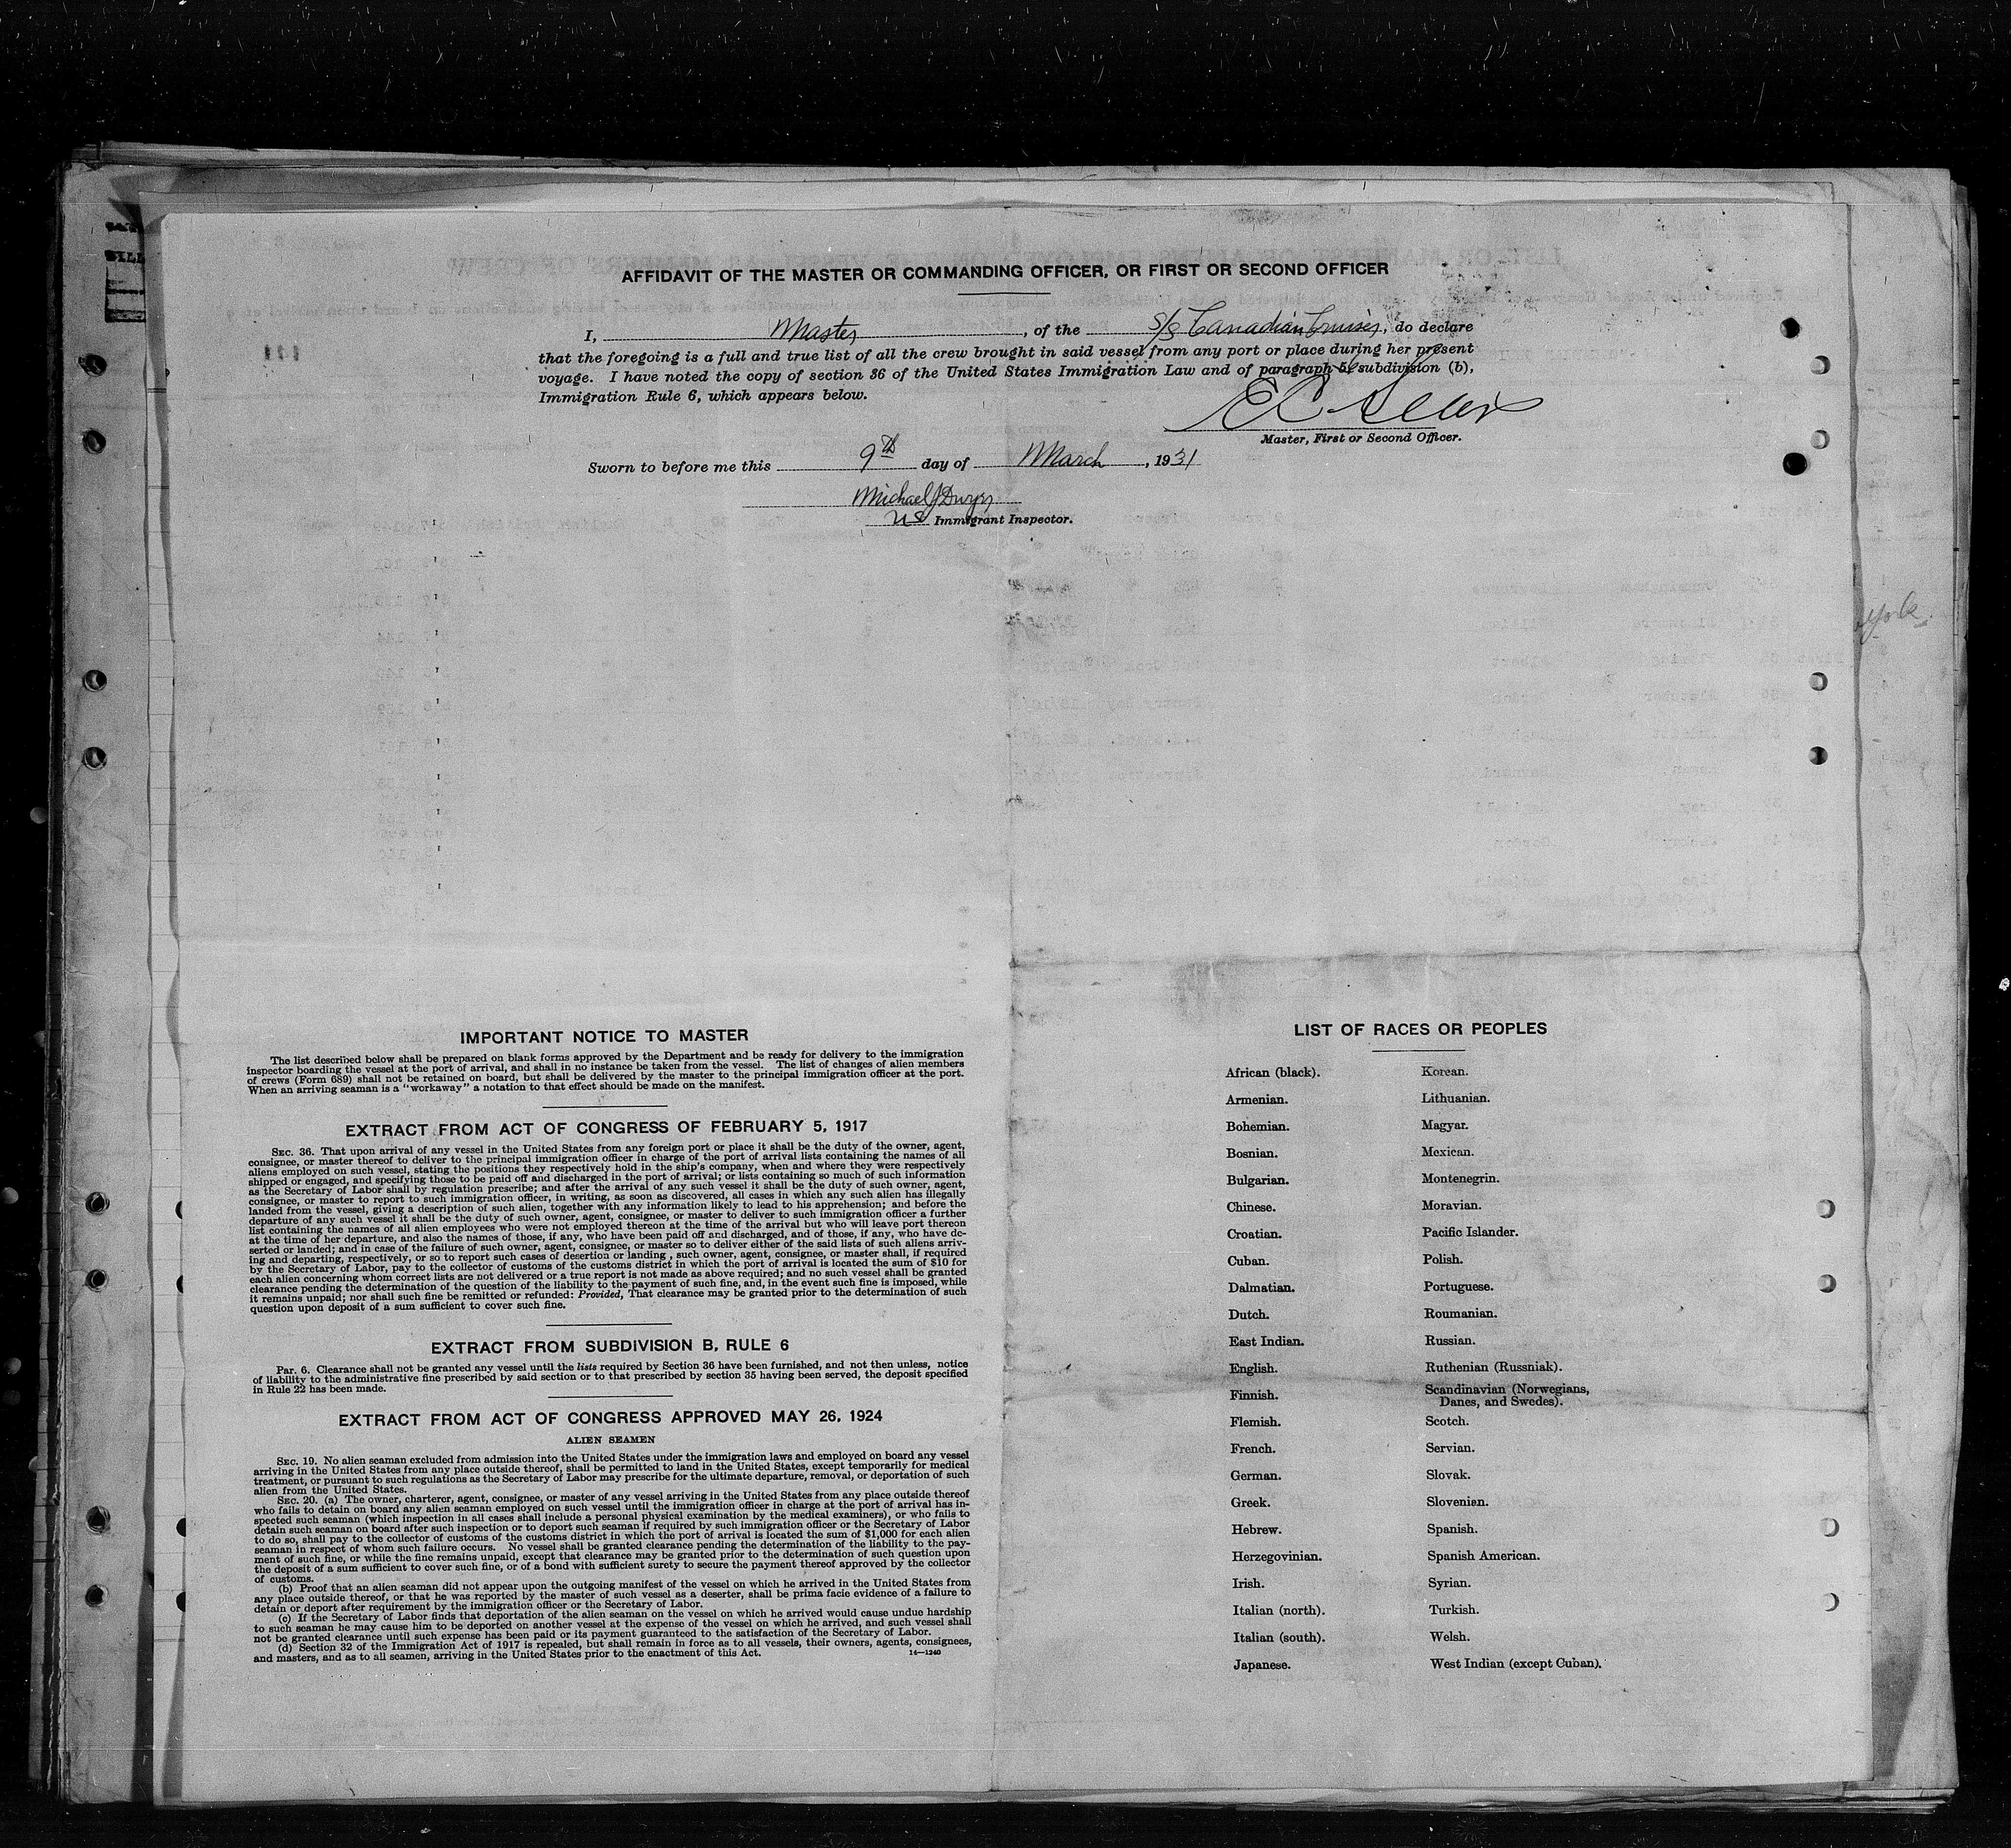 AFFIDAVIT OF THE MASTER OR COMMANDING OFFICER, OR FIRST OR SECOND OFFICER
I, Master, of the S/S Canadian Cruiser, do declare
that the foregoing is a full and true list of all the crew brought in said vessel from any port or place during her present
voyage. I have noted the copy of section 36 of the United States Immigration Law and of paragraph 5, subdivision (b),
Immigration Rule 6, which appears below.
Master, First or Second Officer.
Sworn to before me this 9th day of March, 1931
Michael J Dwyer
US Immigrant Inspector.
York
IMPORTANT NOTICE TO MASTER
The list described below shall be prepared on blank forms approved by the Department and be ready for delivery to the immigration
inspector boarding the vessel at the port of arrival, and shall in no instance be taken from the vessel. The list of changes of alien members
of crews (Form 689) shall not be retained on board, but shall be delivered by the master to the principal immigration officer at the port.
When an arriving seaman is a "workaway" a notation to that effect should be made on the manifest.
EXTRACT FROM ACT OF CONGRESS OF FEBRUARY 5, 1917
SEC. 36. That upon arrival of any vessel in the United States from any foreign port or place it shall be the duty of the owner, agent,
consignee, or master thereof to deliver to the principal immigration officer in charge of the port of arrival lists containing the names of all
aliens employed on such vessel, stating the positions they respectively hold in the ship's company, when and where they were respectively
shipped or engaged, and specifying those to be paid off and discharged in the port of arrival; or lists containing so much of such information
as the Secretary of Labor shall by regulation prescribe; and after the arrival of any such vessel it shall be the duty of such owner, agent,
consignee, or master to report to such immigration officer, in writing, as soon as discovered, all cases in which any such alien has illegally
landed from the vessel, giving a description of such alien, together with any information likely to lead to his apprehension; and before the
departure of any such vessel it shall be the duty of such owner, agent, consignee, or master to deliver to such immigration officer a further
list containing the names of all alien employees who were not employed thereon at the time of the arrival but who will leave port thereon
at the time of her departure, and also the names of those, if any, who have been paid off and discharged, and of those, if any, who have de-
serted or landed; and in case of the failure of such owner, agent, consignee, or master so to deliver either of the said lists of such aliens arriv-
ing and departing, respectively, or so to report such cases of desertion or landing , such owner, agent, consignee, or master shall, if required
by the Secretary of Labor, pay to the collector of customs of the customs district in which the port of arrival is located the sum of $10 for
each alien concerning whom correct lists are not delivered or a true report is not made as above required; and no such vessel shall be granted
clearance pending the determination of the question of the liability to the payment of such fine, and, in the event such fine is imposed, while
it remains unpaid; nor shall such fine be remitted or refunded: Provided, That clearance may be granted prior to the determination of such
question upon deposit of a sum sufficient to cover such fine.
EXTRACT FROM SUBDIVISION B, RULE 6
Par. 6. Clearance shall not be granted any vessel until the lists required by Section 36 have been furnished, and not then unless, notice
of liability to the administrative fine prescribed by said section or to that prescribed by section 35 having been served, the deposit specified
in Rule 22 has been made.
EXTRACT FROM ACT OF CONGRESS APPROVED MAY 26, 1924
ALIEN SEAMEN
SEC. 19. No alien seaman excluded from admission into the United States under the immigration laws and employed on board any vessel
arriving in the United States from any place outside thereof, shall be permitted to land in the United States, except temporarily for medical
treatment, or pursuant to such regulations as the Secretary of Labor may prescribe for the ultimate departure, removal, or deportation of such
alien from the United States.
SEC. 20. (a) The owner, charterer, agent, consignee, or master of any vessel arriving in the United States from any place outside thereof
who fails to detain on board any alien seaman employed on such vessel until the immigration officer in charge at the port of arrival has in-
spected such seaman (which inspection in all cases shall include a personal physical examination by the medical examiners), or who fails to
detain such seaman on board after such inspection or to deport such seaman if required by such immigration officer or the Secretary of Labor
to do so, shall pay to the collector of customs of the customs district in which the port of arrival is located the sum of $1,000 for each alien
seaman in respect of whom such failure occurs. No vessel shall be granted clearance pending the determination of the liability to the pay-
ment of such fine, or while the fine remains unpaid, except that clearance may be granted prior to the determination of such question upon
the deposit of a sum sufficient to cover such fine, or of a bond with sufficient surety to secure the payment thereof approved by the collector
of customs.
(b) Proof that an alien seaman did not appear upon the outgoing manifest of the vessel on which he arrived in the United States from
any place outside thereof, or that he was reported by the master of such vessel as a deserter, shall be prima facie evidence of a failure to
detain or deport after requirement by the immigration officer or the Secretary of Labor.
(c) If the Secretary of Labor finds that deportation of the alien seaman on the vessel on which he arrived would cause undue hardship
to such seaman he may cause him to be deported on another vessel at the expense of the vessel on which he arrived, and such vessel shall
not be granted clearance until such expense has been paid or its payment guaranteed to the satisfaction of the Secretary of Labor.
(d) Section 32 of the Immigration Act of 1917 is repealed, but shall remain in force as to all vessels, their owners, agents, consignees,
and masters, and as to all seamen, arriving in the United States prior to the enactment of this Act.
14—1240
LIST OF RACES OR PEOPLES
African (black).
Armenian.
Bohemian.
Bosnian.
Bulgarian.
Chinese.
Croatian.
Cuban.
Dalmatian.
Dutch.
East Indian.
English.
Finnish.
Flemish.
French.
German.
Greek.
Hebrew.
Herzegovinian.
Irish.
Italian (north).
Italian (south).
Japanese.
Korean.
Lithuanian.
Magyar.
Mexican.
Montenegrin.
Moravian.
Pacific Islander.
Polish.
Portuguese.
Roumanian.
Russian.
Ruthenian (Russniak).
Scandinavian (Norwegians,
Danes, and Swedes).
Scotch.
Servian.
Slovak.
Slovenian.
Spanish.
Spanish American.
Syrian.
Turkish.
Welsh.
West Indian (except Cuban).